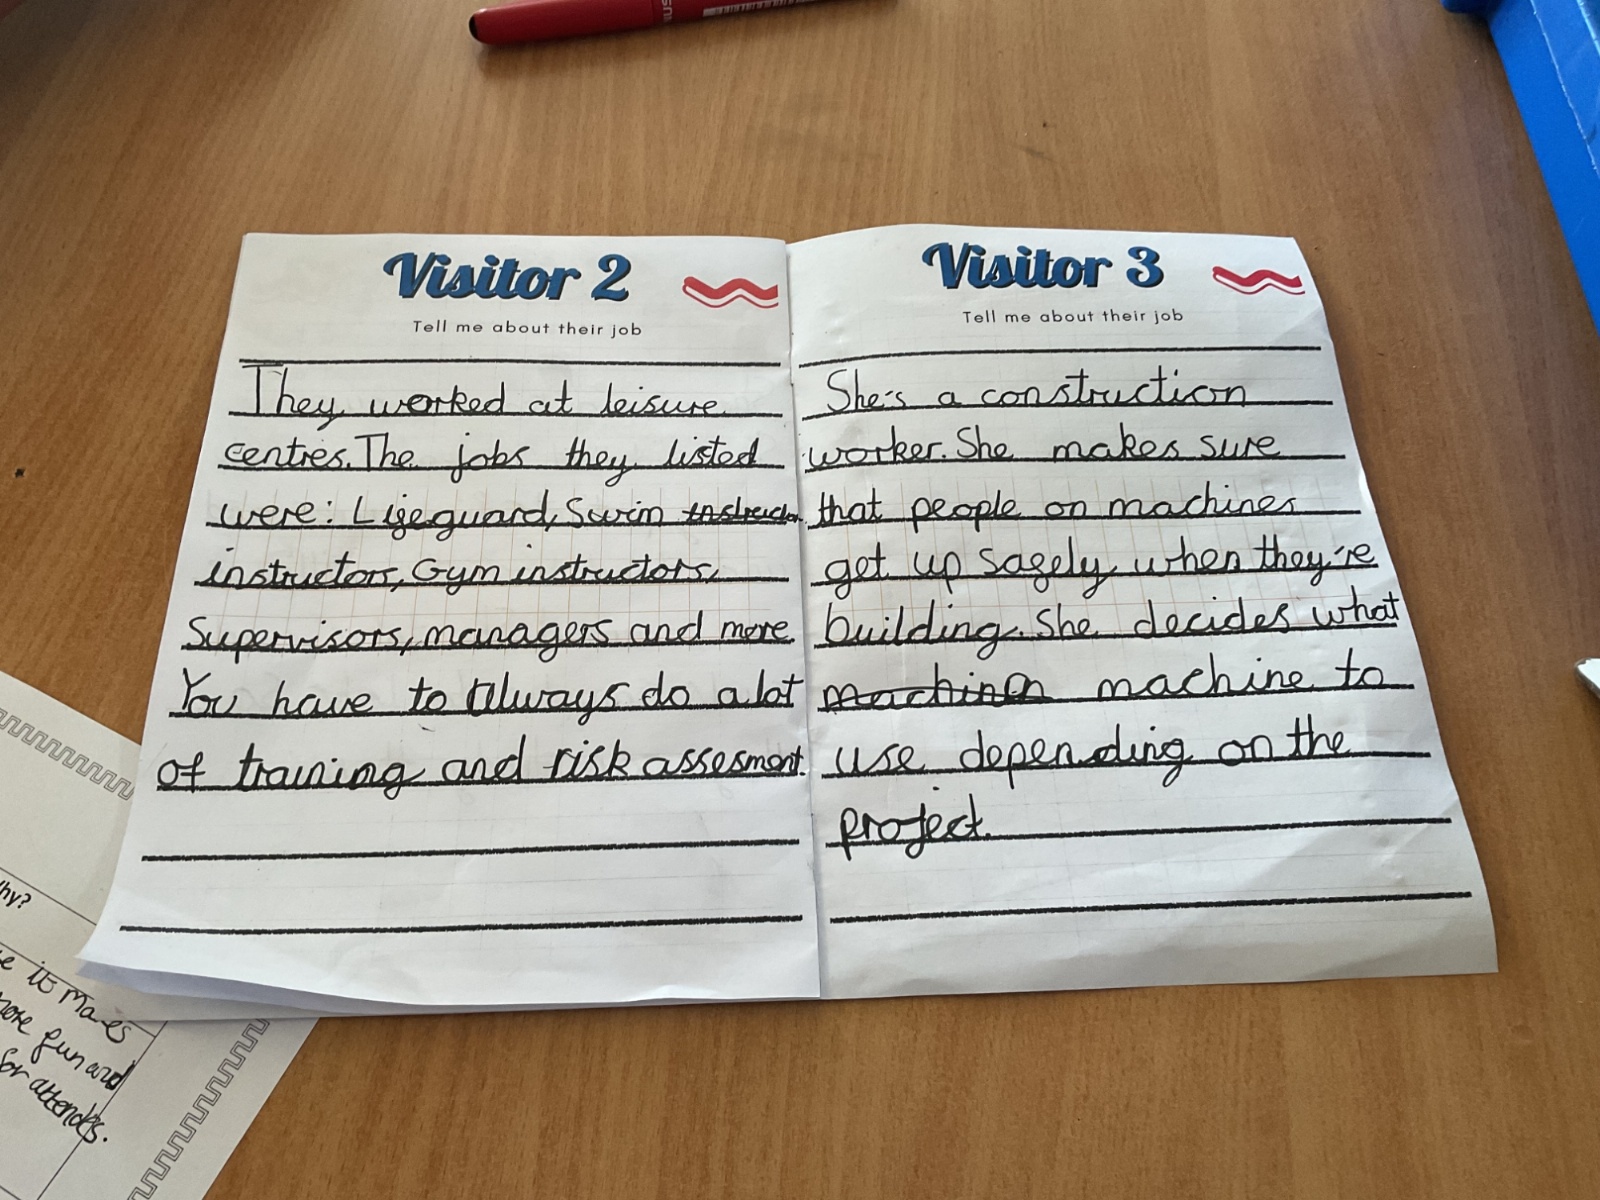 Visitor 2
Tell me about their job
They worked at leisure
centres. The jobs they listed
were: Lifeguard, Swim instructor
instructors, Gym instructors,
Supervisors, managers and more.
You have to always do a lot
of training and risk assesment.
Visitor 3
Tell me about their job
She's a construction
worker. She makes sure
that people on machines
get up safely when they're
building. She decides what
machine machine to
use depending on the
project.
hy?
e it makes
more fun and
for attendes.